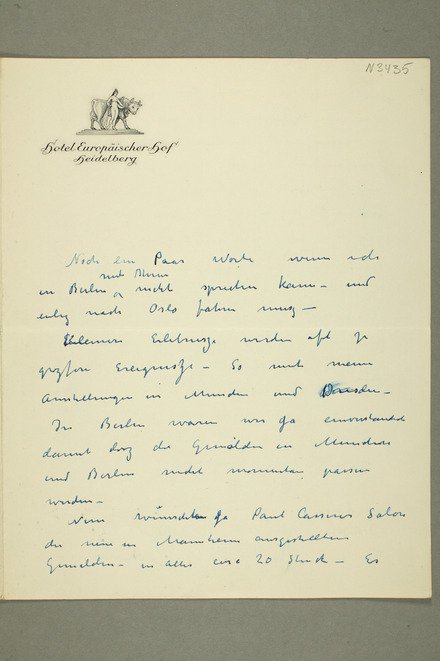 N3435
Hotel Europäischer-Hof
Heidelberg
Noch ein Paar Worte wenn ich
mit Ihnen
in Berlin nicht sprechen kann – und
eilig nach Oslo fahren muss –
Kleinere Erlebnisse werden oft zu
grossen Ereignisse – So mit meine
Ausstellungen in München und Dresden –
In Berlin waren wir ja einverstanden
damit dass die Gemälden in München
und Berlin nicht momentan passen
werden –
Nun wünschte ja Paul Cassirers Salon
die nein in Mannheim ausgestellten
Gemälden – in alles circa 20 Stück – Es